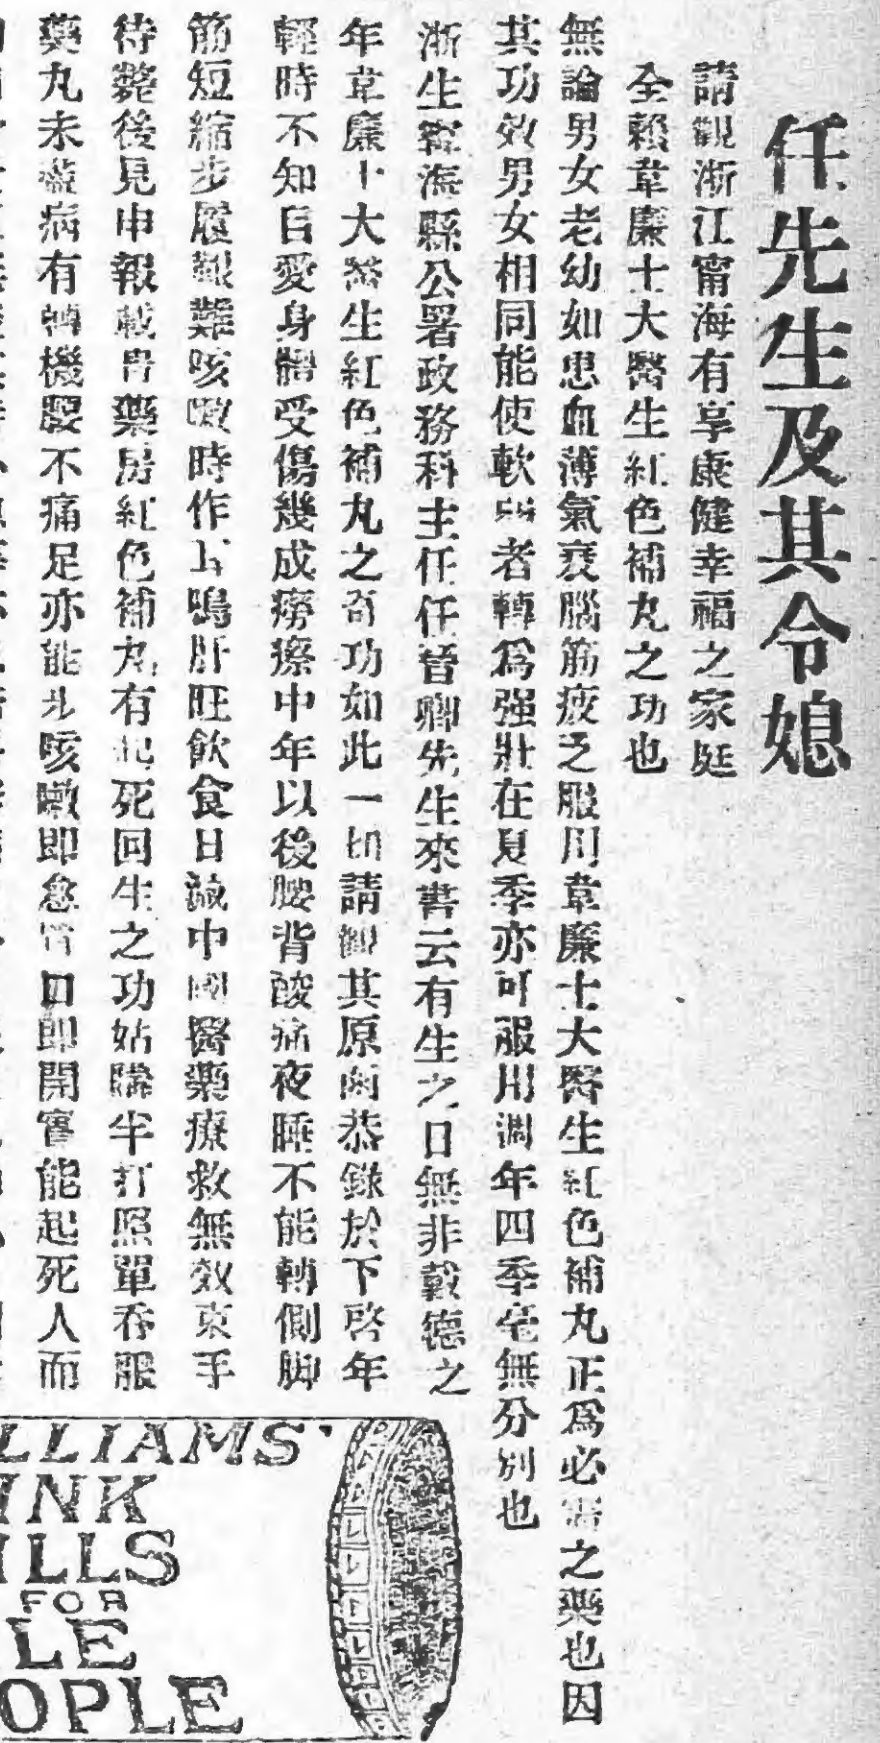 任先生及其令媳
請觀浙江甯海有享康健幸福之家庭
全賴韋廉士大醫生紅色補丸之功也
無論男女老幼如患血薄氣衰腦筋疲乏服用韋廉士大醫生紅色補丸正爲必需之藥也因
其功效男女相同能使軟弱者轉爲强壯在夏季亦可服用週年四季毫無分別也
浙生甯海縣公署政務科主任任晉卿先生來書云有生之日無非戴德之
年韋廉士大醫生紅色補丸之奇功如此一切請觀其原函恭錄於下啓年
輕時不知自愛身體受傷幾成癆瘵中年以後腰背酸痛夜睡不能轉側脚
筋短縮步履艱難咳嗽時作耳鳴肝旺飲食日減中國醫藥療救無效束手
待斃後見申報載貴藥房紅色補丸有起死回生之功姑購半打照單吞服
藥丸未盡病有轉機腰不痛足亦能步咳嗽即愈胃口即開實能起死人而
LLIAMS'
INK
ILLS
FOR
LE
OPLE